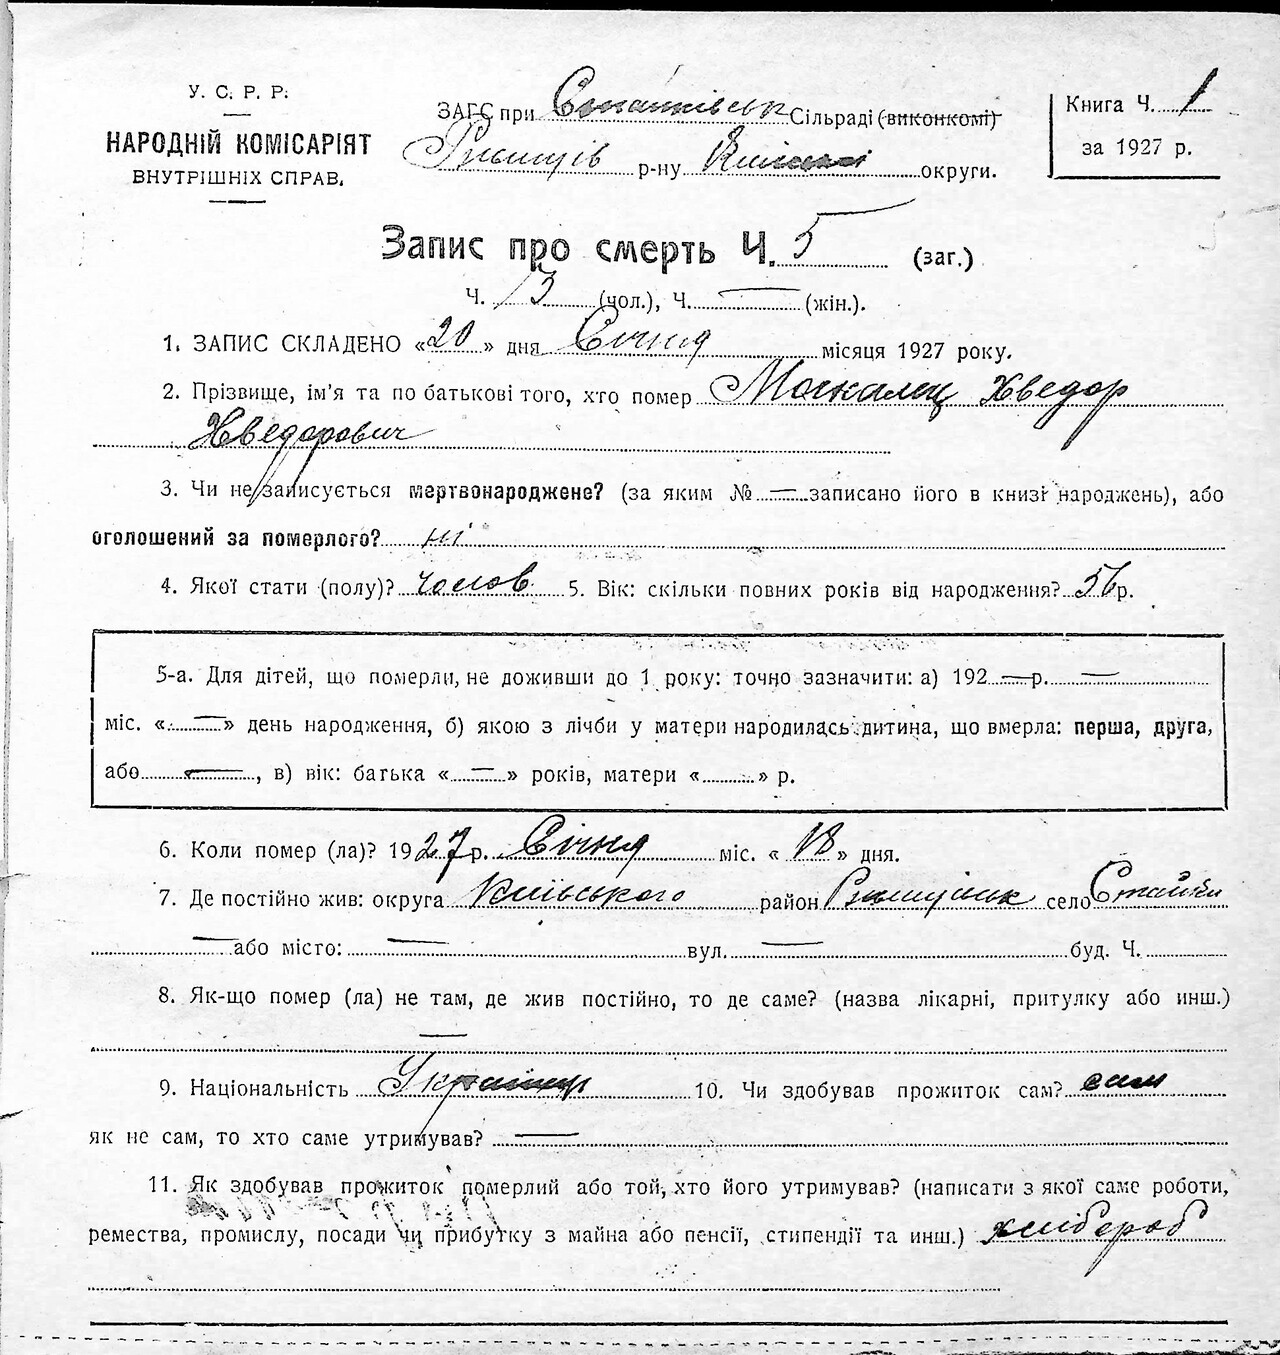 У. С. Р. Р.
НАРОДНІЙ КОМІСАРІЯТ
ВНУТРІШНІХ СПРАВ.
ЗАГС при Стайківськ Сільраді (виконкомі)
Ржищів р-ну Київської округи.
Книга Ч. 1
за 1927 р.
Запис про смерть Ч. 5 (заг.)
Ч. 3 (чол.), Ч. — (жін.).
1. ЗАПИС СКЛАДЕНО «20» дня Січня місяця 1927 року.
2. Прізвище, ім'я та по батькові того, хто помер Москалец Хведор
Хведорович
3. Чи не записується мертвонароджене? (за яким № — записано його в книзі народжень), або
оголошений за померлого? ні
4. Якої стати (полу)? чолов. 5. Вік: скільки повних років від народження? 56 р.
5-а. Для дітей, що померли, не доживши до 1 року: точно зазначити: а) 192 — р. —
міс. « — » день народження, б) якою з лічби у матери народилась дитина, що вмерла: перша, друга,
або — , в) вік: батька « — » років, матери « » р.
6. Коли помер (ла)? 1927 р. Січня міс. « 18 » дня.
7. Де постійно жив: округа Київського район Ржищівськ село Стайки
— або місто: — вул. — буд. Ч.
8. Як-що помер (ла) не там, де жив постійно, то де саме? (назва лікарні, притулку або инш.)
—
9. Національність Українец 10. Чи здобував прожиток сам? сам
як не сам, то хто саме утримував? —
11. Як здобував прожиток померлий або той, хто його утримував? (написати з якої саме роботи,
ремества, промислу, посади чи прибутку з майна або пенсії, стипендії та инш.) хлібороб